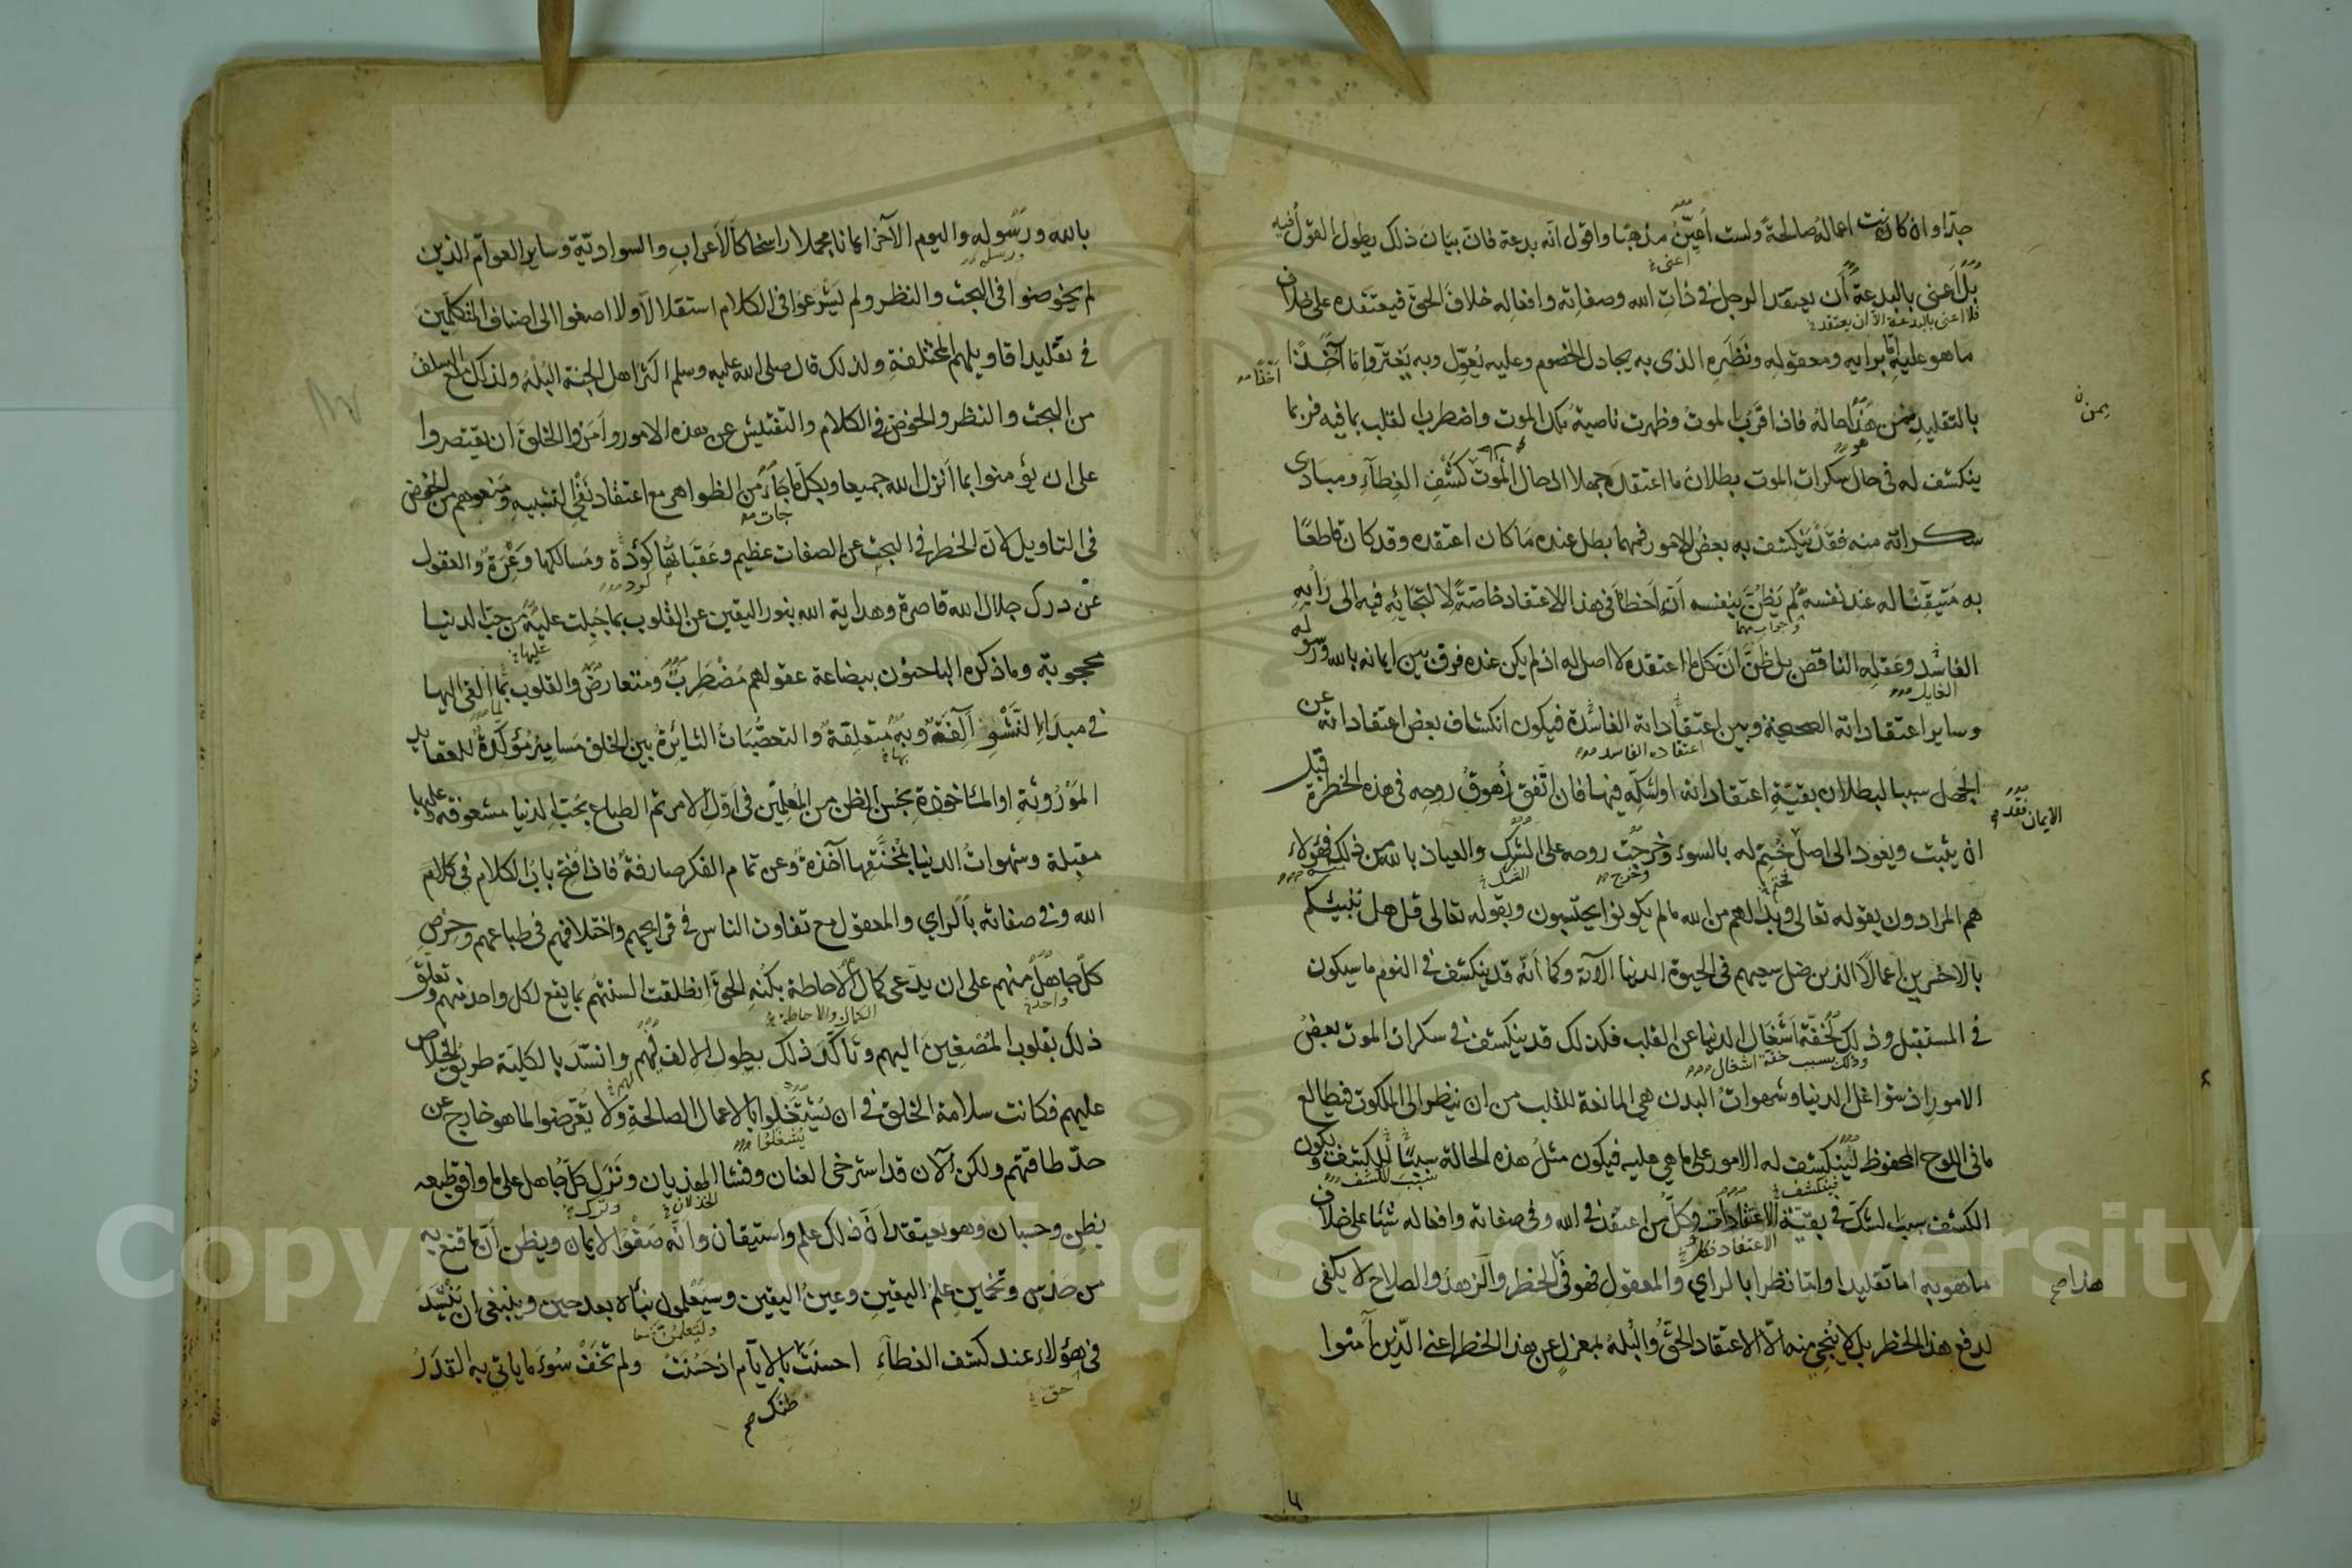 جدا وان كانت اعماله صالحة ولست أعيّن مذهبا واقول انه بدعة فان بيان ذلك يطول القول فيه
اعنى
بل اعنى بالبدعة أن يعتقد الرجل فى ذات الله وصفاته وافعاله خلاف الحق فيعتقده على خلاف
فلا اعنى بالبدعة الا ان يعتقد
ما هو عليه اما برايه ومعقوله ونظره الذى به يجادل الخصوم وعليه يعوّل وبه يغترّ واما آخذا
أخذا
بالتقليد فمن هذا حاله فاذا قرب الموت وظهرت ناصية ملك الموت واضطرب القلب بما فيه فربما
يمن
هو
ينكشف له فى حال سكرات الموت بطلان ما اعتقده جهلا اذ حال الموت كشف الغطاء ومبادى
سكراته منه فقد ينكشف به بعض الامور فمهما بطل عنده ما كان اعتقده وقد كان قاطعا
به متيقنا له عند نفسه لم يظن بنفسه أنه أخطأ فى هذا الاعتقاد خاصة لالتجائه فيه الى رأيه
وجواب مهما
الفاسد وعقله الناقص بل ظن أن كل ما اعتقده لا اصل له اذ لم يكن عنده فرق بين ايمانه بالله ورسوله
وساير اعتقاداته الصحيحة وبين اعتقاداته الفاسدة فيكون انكشاف بعض اعتقاداته عن
اعتقاده الفاسد
الجهل سببا لبطلان بقية اعتقاداته او لشكه فيها فان اتفق زهوق روحه فى هذه الخطرة قبل
الايمان فقد
ان يثبت ويعود الى اصل ختم له بالسوء وخرجت روحه على الشرك والعياذ بالله من ذلك فهؤلاء
وخرج
الشك
هم المرادون بقوله تعالى وبدا لهم من الله ما لم يكونوا يحتسبون وبقوله تعالى قل هل ننبئكم
بالاخسرين اعمالا الذين ضل سعيهم فى الحيوة الدنيا الآية وكما أنه قد ينكشف فى النوم ما سيكون
فى المستقبل وذلك لخفة اشغال الدنيا عن القلب فكذلك قد ينكشف فى سكرات الموت بعض
وذلك بسبب خفة اشغال
الامور اذ شواغل الدنيا وشهوات البدن هى المانعة للقلب من ان ينظر الى الملكوت فيطالع
ما فى اللوح المحفوظ لينكشف له الامور على ما هى عليه فيكون مثل هذه الحالة سببا للكشف ويكون
فينكشف
سبب للكشف
الكشف سبب الشك فى بقية الاعتقادات وكل من اعتقد فى الله وفى صفاته وافعاله شيئا على خلاف
الاعتقاد فكل
ما هو به اما تقليدا واما نظرا بالراي والمعقول فهو فى الخطر والزهد والصلاح لا يكفى
هذا صح
لدفع هذا الخطر بل لا ينجى منه الا الاعتقاد الحق والبله بمعزل عن هذا الخطر اعنى الذين آمنوا
بالله ورسوله واليوم الآخر ايمانا مجملا راسخا كالاعراب والسوادية وساير العوام الذين
ورسله
لم يخوضوا فى البحث والنظر ولم يشرعوا فى الكلام استقلالا ولا اصغوا الى اصناف المتكلمين
فى تقليد اقاويلهم المختلفة ولذلك قال صلى الله عليه وسلم اكثر اهل الجنة البله ولذلك منع السلف
من البحث والنظر والخوض فى الكلام والتفتيش عن هذه الامور وامروا الخلق ان يقتصروا
على ان يؤمنوا بما انزل الله جميعا وبكل ما جاء من الظواهر مع اعتقاد نفى التشبيه ومنعوهم من الخوض
جات
فى التاويل لان الخطر فى البحث عن الصفات عظيم وعقباتها كؤدة ومسالكها وعرة والعقول
كود
عن درك جلال الله قاصرة وهداية الله بنور اليقين عن القلوب بما جبلت عليه من حب الدنيا
عليها
محجوبة وما ذكره الباحثون ببضاعة عقولهم مضطرب ومتعارض والقلوب بما القى اليها
لما
فى مبدا النشو آلفة وبه متعلقة والتعصبات الثائرة بين الخلق مسامير مؤكدة للعقايد
بها
الموروثة او الماخوذة بحسن الظن من المعلمين فى اول الامر ثم الطباع بحب الدنيا مشعوفة وعليها
مقبلة وشهوات الدنيا بمخنقها آخذة وعن تمام الفكر صارفة فاذا فتح باب الكلام فى كلام
الله وفى صفاته بالراي والمعقول مع تفاوت الناس فى قرايحهم واختلافهم فى طباعهم وحرص
كل جاهل منهم على ان يدعى كمال الاحاطة بكنه الحق انطلقت السنتهم بما يقع لكل واحد منهم وتعلق
واحد
الكمال والاحاطة
ذلك بقلوب المصغين اليهم وتأكد ذلك بطول الالف فيهم وانسد بالكلية طريق الخلاص
عليهم فكانت سلامة الخلق فى ان يشتغلوا بالاعمال الصالحة ولا يتعرضوا لما هو خارج عن
يشغلوا
حد طاقتهم ولكن الآن قد استرخى العنان وفشا الهذيان ونزل كل جاهل على ما وافق طبعه
الخذلان
وترك
بظن وحسبان وهو يعتقد أن ذلك علم واستيقان وانه صفو الايمان ويظن أن ما قنع به
من حدس وتخمين علم اليقين وعين اليقين وسيعلمون نبأه بعد حين وينبغى ان ينشد
ولتعلمن
فى هؤلاء عند كشف الغطاء احسنت بالايام اذ حسنت ولم تخف سوء ما ياتي به القدر
حق
ظنك صح
Copyright © King Saud University